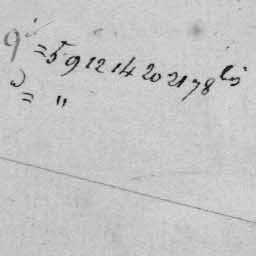 9° = 5 9 12 14 20 21 78 bis
= "